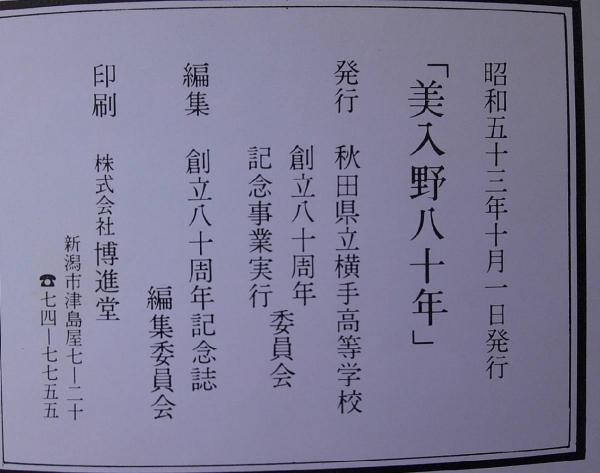 昭和五十三年十月一日発行
「美入野八十年」
発行 秋田県立横手高等学校
創立八十周年
記念事業実行
委員会
編集 創立八十周年記念誌
編集委員会
印刷 株式会社 博進堂
新潟市津島屋七―二十
☎七四―七七五五